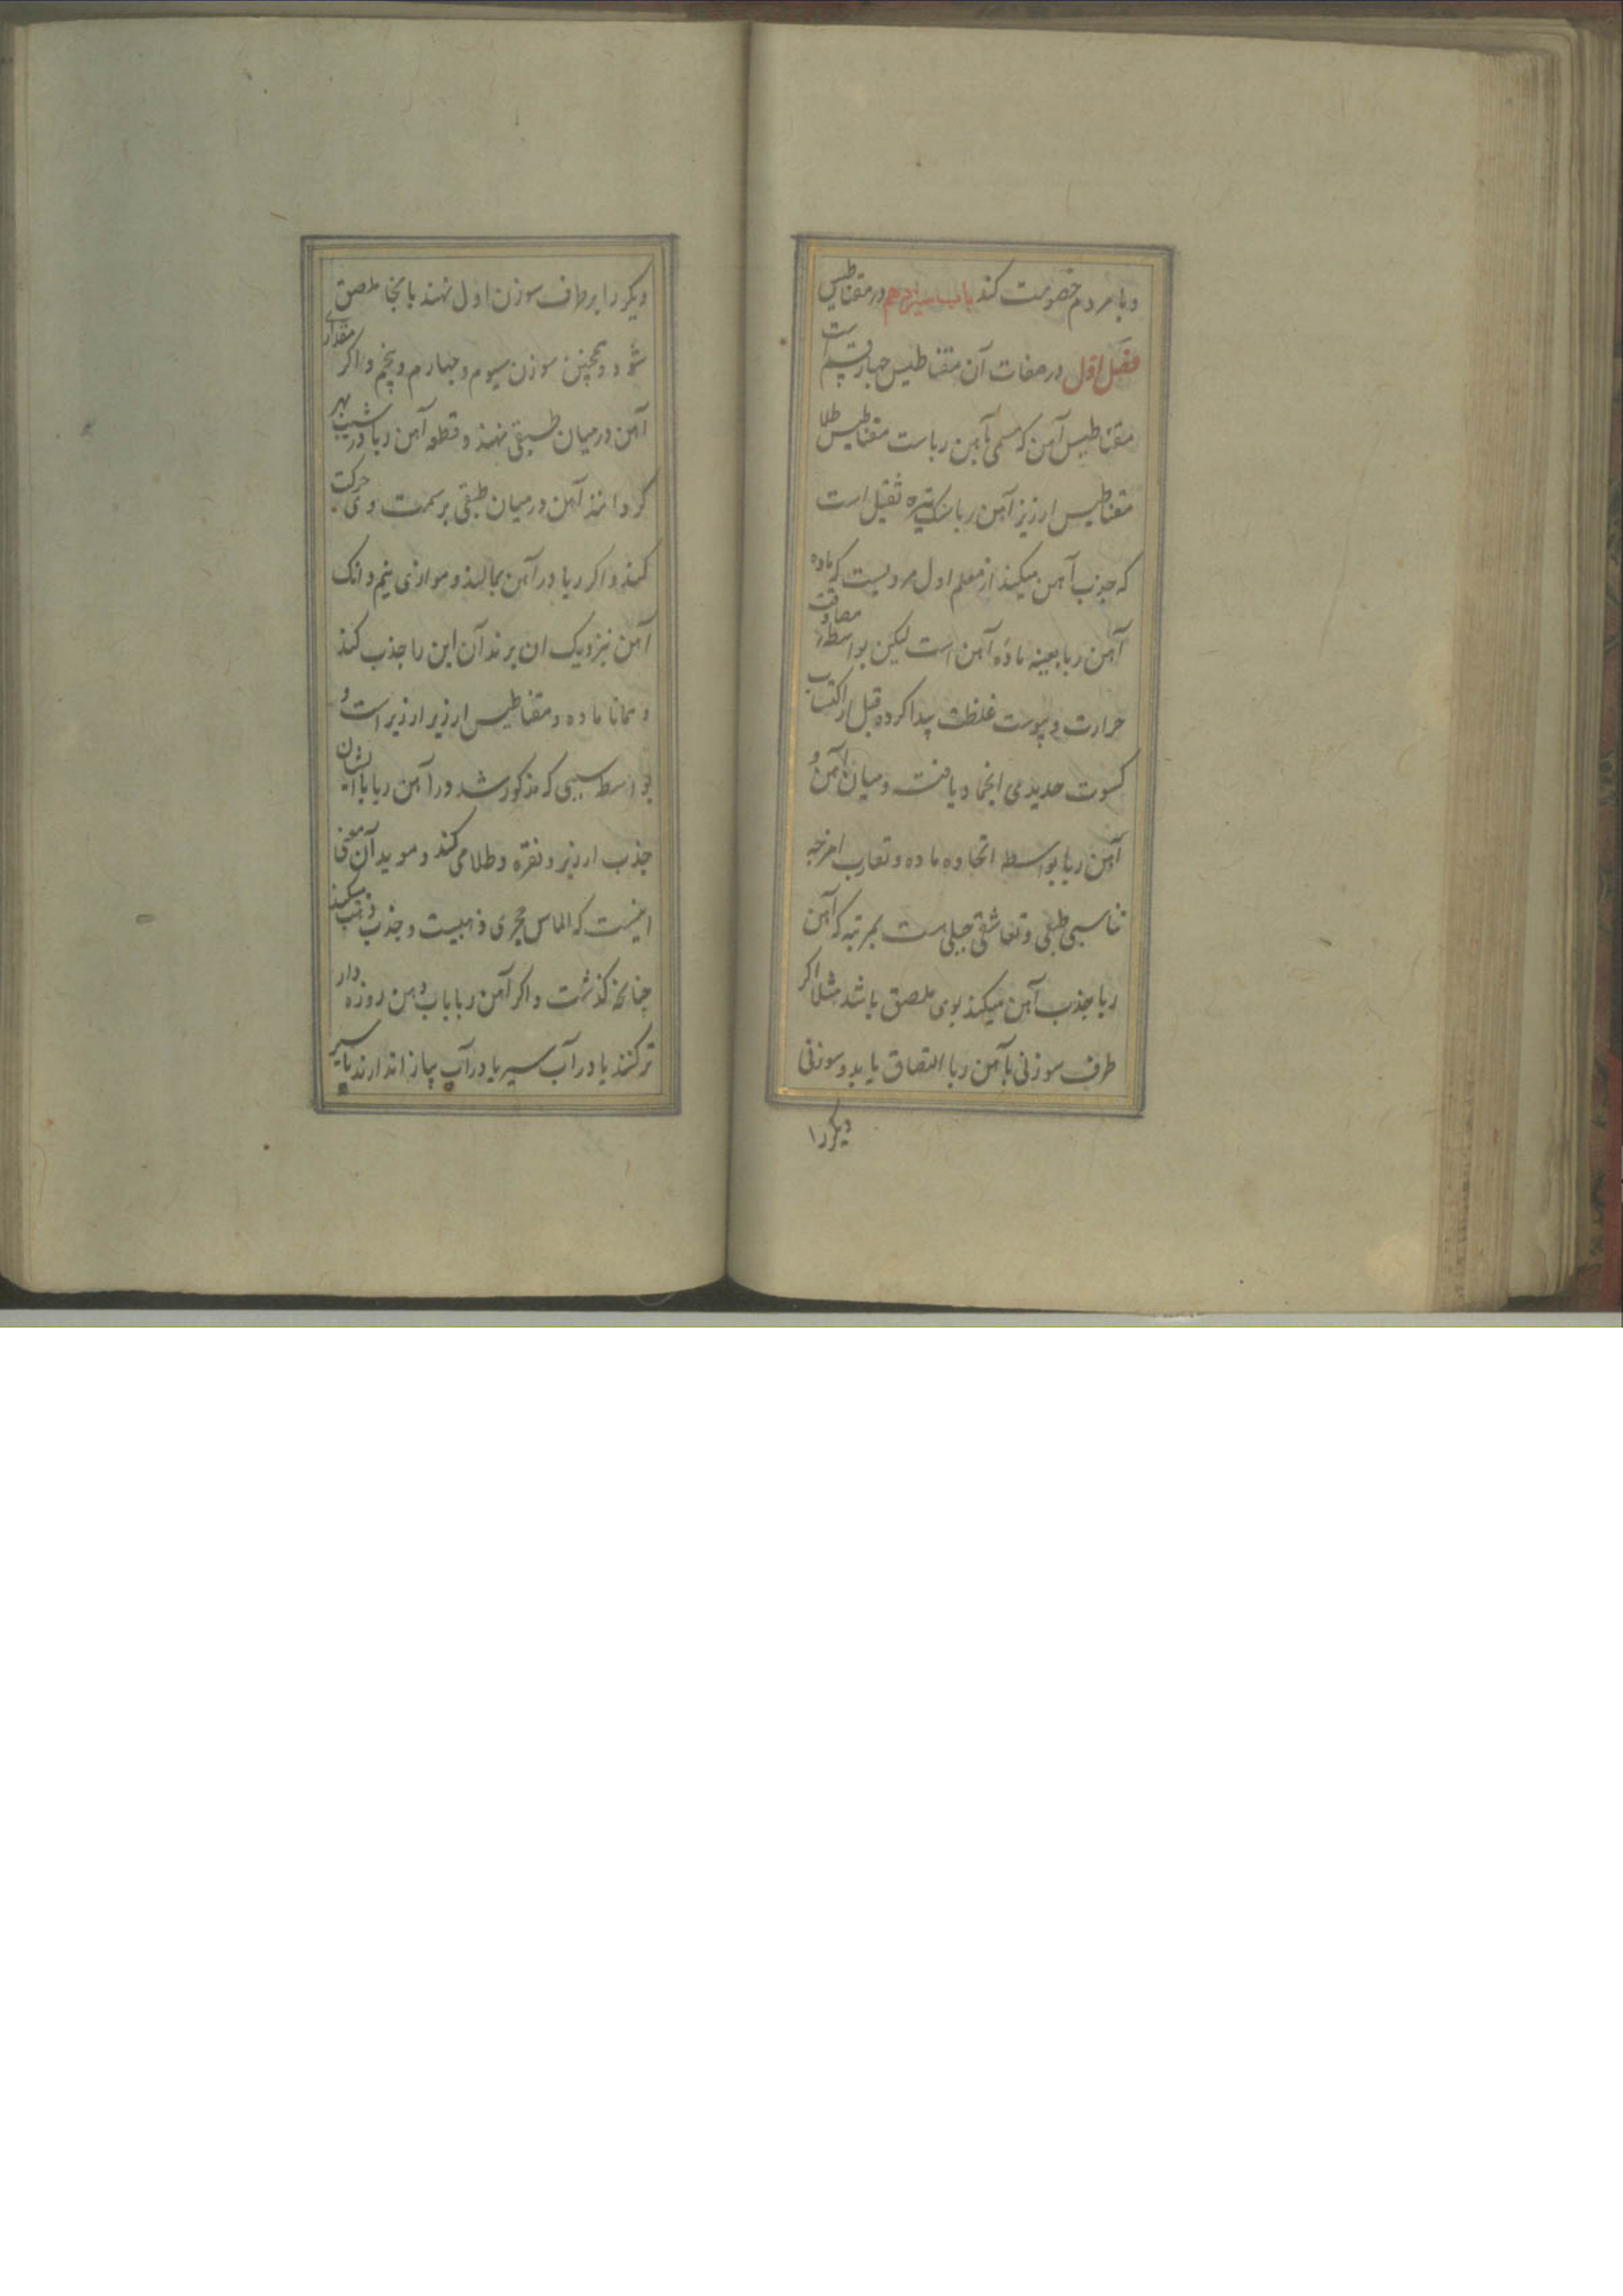 و با مردم خصومت کند باب سیزدهم در مقناطیس
فصل اول در صفات آن مقناطیس چهار قسم است
مقناطیس آهن که مسمی بآهن رباست مقناطیس طلا
مقناطیس ارزیز آهن ربا سنگ تیره ثقیل است
که جذب آهن میکند از معلم اول مرویست که ماده
آهن ربا بعینه مادّه آهن است لیکن بواسطه مصادفت
حرارت و یبوست غلظت پیدا کرده قبل از اکتساب
کسوت حدیدی انجماد یافته و میان آهن و
آهن ربا بواسطه اتحاده ماده و تقارب امزجه
تناسبی طبعی و تعاشقی جبلی است بمرتبه که آهن
ربا جذب آهن میکند بوی ملصق باشد مثلا اکر
طرف سوزنی بآهن ربا التصاق یابد و سوزنی
دیکر را
دیکر را بر طرف سوزن اول نهند بانجا ملصق
شود و همچنین سوزن سیوم و چهارم و پنجم و اکر مقداری
آهن در میان طبقی نهند و قطعه آهن ربا در شیب بهر
کردانند آهن در میان طبقی بر سمت وی حرکت
کند و اکر ربا در آهن بمالند و موازی نیم دانک
آهن نزدیک ان برند آن این را جذب کند
و همانا ماده و مقناطیس ارزیر ارزیر است و
بواسطه سببی که مذکور شد در آهن ربا با ایشان
جذب ارزیر و نقره و طلا می کند و موید آن معنی
اینست که الماس حجری ذهبیست و جذب ذهب میکند
چنانچه کذشت و اکر آهن ربا باب دهن روزه دار
تر کنند یا در آب سیر یا در آب پیاز اندازند تاثیر